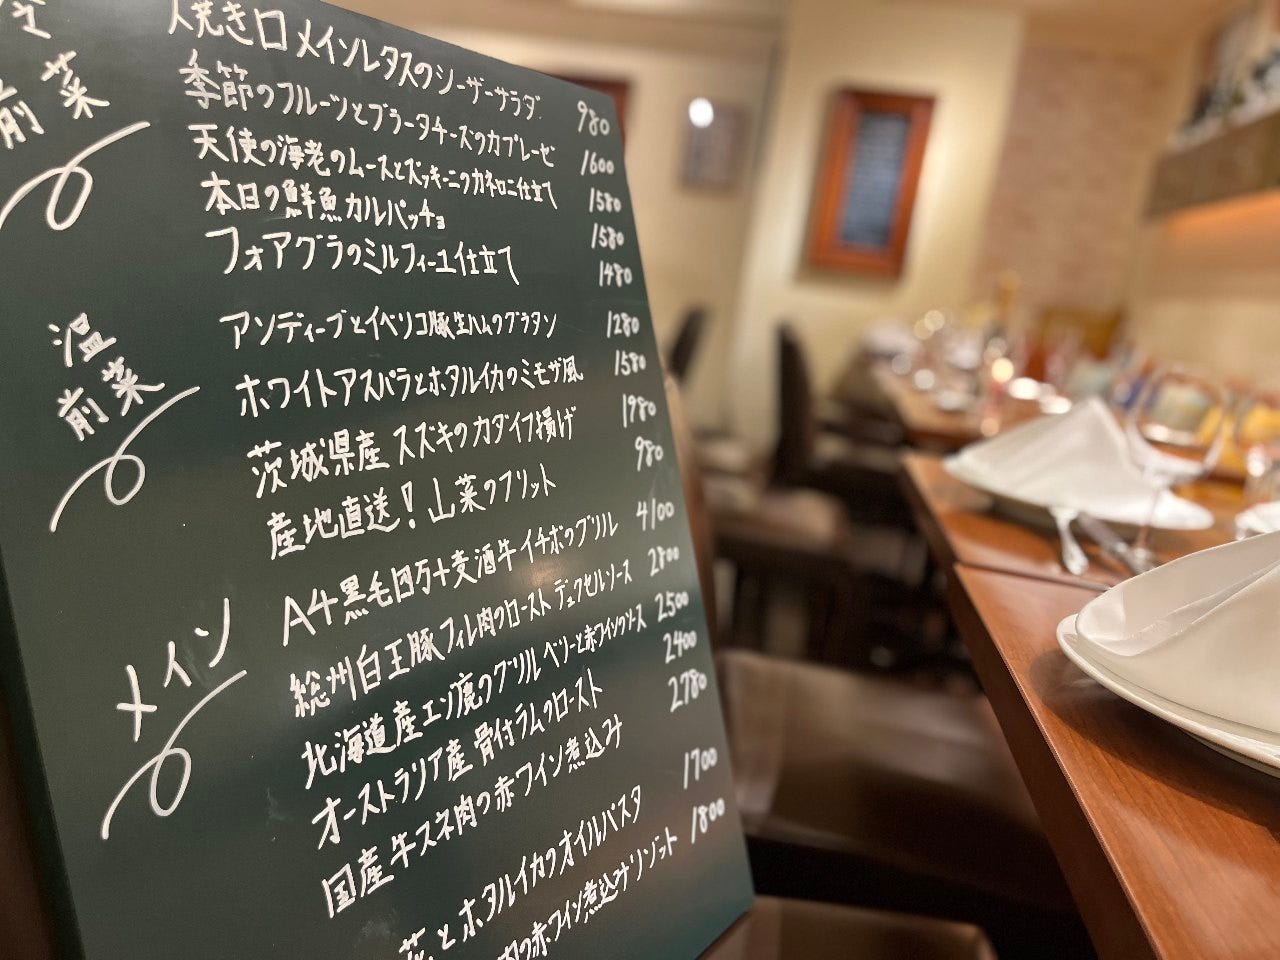 前菜
焼きロメインレタスのシーザーサラダ 980
季節のフルーツとブラータチーズのカプレーゼ 1600
天使の海老のムースとズッキーニのカネロニ仕立て 1580
本日の鮮魚カルパッチョ 1580
フォアグラのミルフィーユ仕立て 1480
温前菜
アンディーブとイベリコ豚生ハムのグラタン 1280
ホワイトアスパラとホタルイカのミモザ風 1580
茨城県産スズキのカダイフ揚げ 1980
産地直送！山菜のフリット 980
メイン
A4黒毛和 麦酒牛イチボのグリル 4100
総州白王豚フィレ肉のロースト デュクセルソース 2800
北海道産エゾ鹿のグリル ベリーと赤ワインソース 2500
オーストラリア産 骨付ラムのロースト 2400
国産牛スネ肉の赤ワイン煮込み 2780
とホタルイカのオイルパスタ 1700
肉の赤ワイン煮込みリゾット 1800